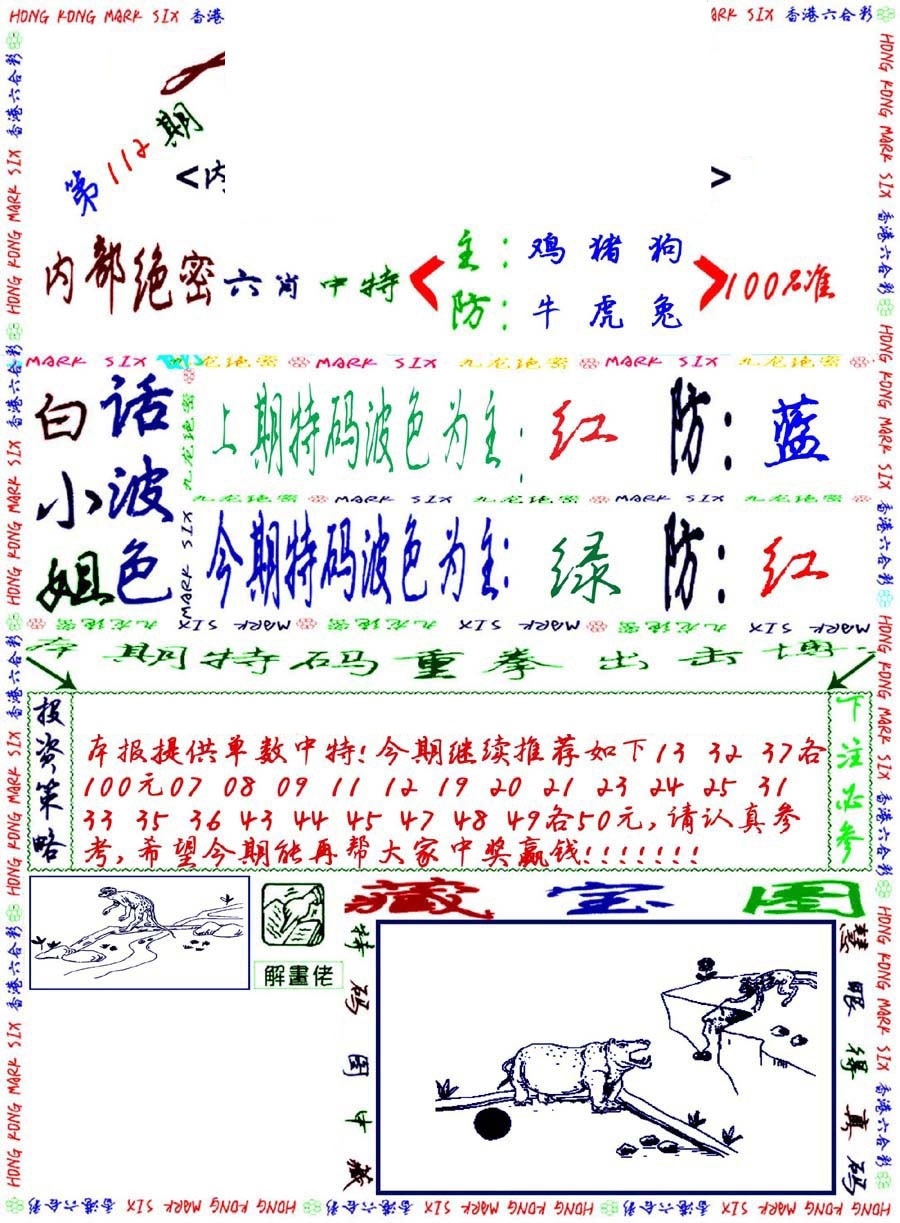 HONG KONG MARK SIX 香港
ARK SIX 香港六合彩
第112期
<内
>
内部绝密六肖中特
主：鸡 猪 狗
防：牛 虎 兔
100%准
MARK SIX 九龙绝密 MARK SIX 九龙绝密 MARK SIX 九龙绝密
白话
小波
姐色
上期特码波色为主：红 防：蓝
九龙绝密 MARK SIX 九龙绝密 MARK SIX 九龙绝密
今期特码波色为主：绿 防：红
九龙绝密 MARK SIX 九龙绝密 MARK SIX 九龙绝密 MARK SIX
本期特码重拳出击博
投资策略
本报提供单数中特!今期继续推荐如下13 32 37各
100元07 08 09 11 12 19 20 21 23 24 25 31
33 35 36 43 44 45 47 48 49各50元,请认真参
考,希望今期能再帮大家中奖赢钱!!!!!!!
下注必参
解畫佬
藏宝图
特码图中藏
慧眼得真码
HONG KONG MARK SIX 香港六合彩 HONG KONG MARK SIX 香港六合彩 HONG KONG MARK SIX 香港六合彩